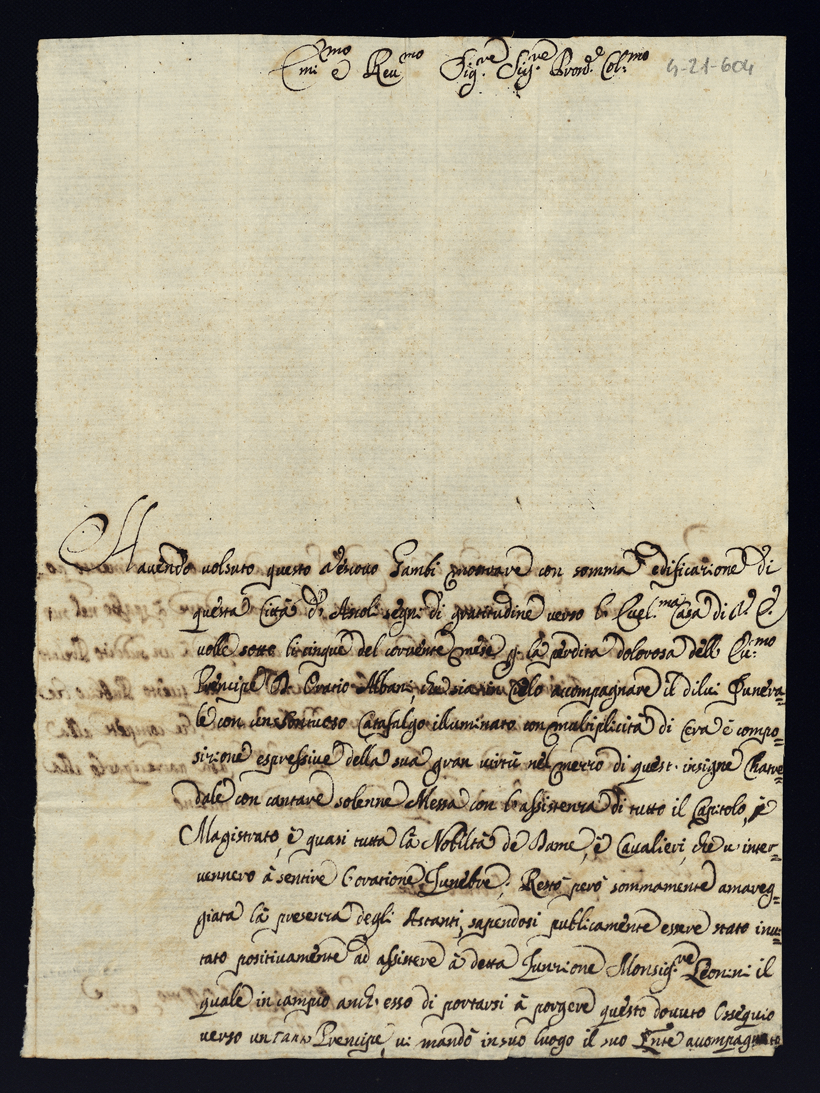 Em:mo e Reu:mo Sig:re Sig:re Pron.e Col:mo 4-21-604
Hauendo volsuto questo Vescouo Gambi mostrare con somma edificazione di
questa Città d'Ascoli segni di gratitudine verso l' Eccl:ma Casa di V. E.
volle sotto li cinque del corrente mese p la perdita dolorosa dell' Ecc:mo
Principe D. Oratio Albani che sia in Cielo accompagnare il di lui Funera=
le con un sontuoso Catafalgo illuminato con multiplicità di Cera è compo=
sizione espressiue della sua gran virtù nel mezzo di quest' insigne Chatte=
dale con cantare solenne Messa con l'assistenza di tutto il Capitolo, è
Magistrato, è quasi tutta là Nobiltà de Dame, è Caualieri, che u' inter=
uennero à sentire l'oratione Funebre. Restò però sommamente amareg=
giata là presenza degli Astanti, sapendosi publicamente essere stato inui=
tato positiuamente ad assistere à detta Funzione Monsig:re Leonini il
quale in campio anch'esso di portarsi à porgere questo douuto Ossequio
verso un tanto Prencipe, ui mandò in suo luogo il suo accompagnato